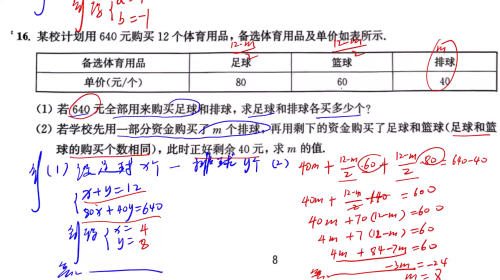 b=-1
16. 某校计划用 640 元购买 12 个体育用品，备选体育用品及单价如表所示.
12-m/2 12-m/2 m
备选体育用品 足球 篮球 排球
单价（元/个） 80 60 40
（1）若 640 元全部用来购买足球和排球，求足球和排球各买多少个？
（2）若学校先用一部分资金购买了 m 个排球，再用剩下的资金购买了足球和篮球（足球和篮
球的购买个数相同），此时正好剩余 40 元，求 m 的值.
解 (1) 设足球x个 一 排球y个
x+y=12
80x+40y=640
解得 x=4
y=8
答:
(2) 40m+12-m/2·60+12-m/2·80=640-40
40m+12-m/2·140=600
40m+70(12-m)=600
4m+7(12-m)=60
4m+84-7m=60
-3m=-24
m=8
8